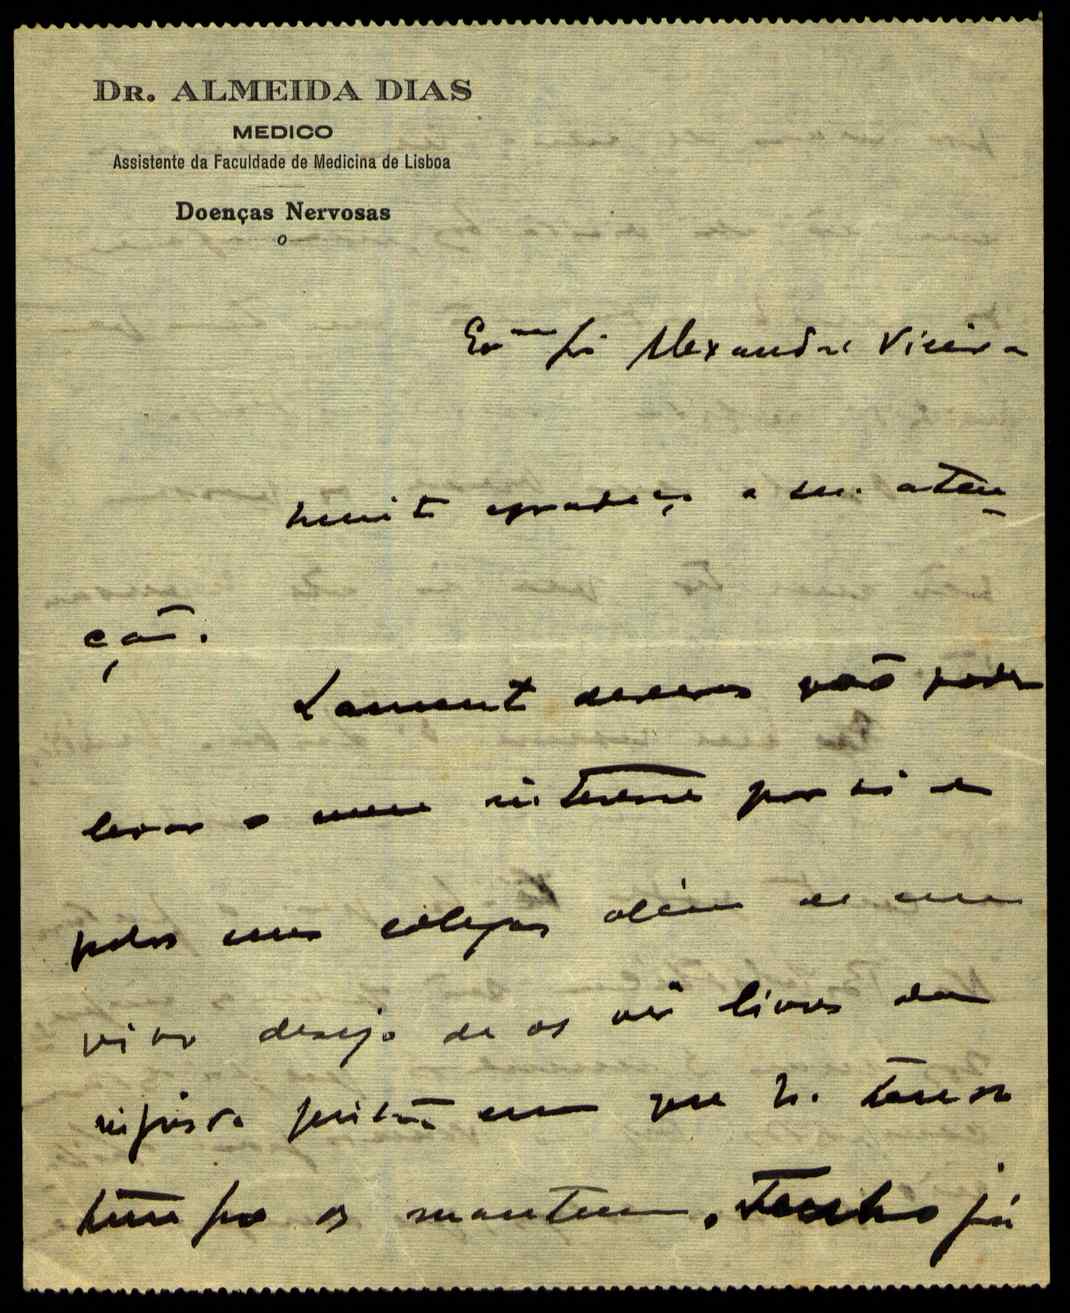 DR. ALMEIDA DIAS
MEDICO
Assistente da Faculdade de Medicina de Lisboa
Doenças Nervosas
Exmo Sr Alexandre Vieira
Muito agradeço a sua aten
ção.
Lamento deveras não poder
levar o meu interesse por si e
pelos seus colegas além de um
vivo desejo de os vêr livres da
injusta prisão em que ha tanto
tempo os mantem. Tenho já